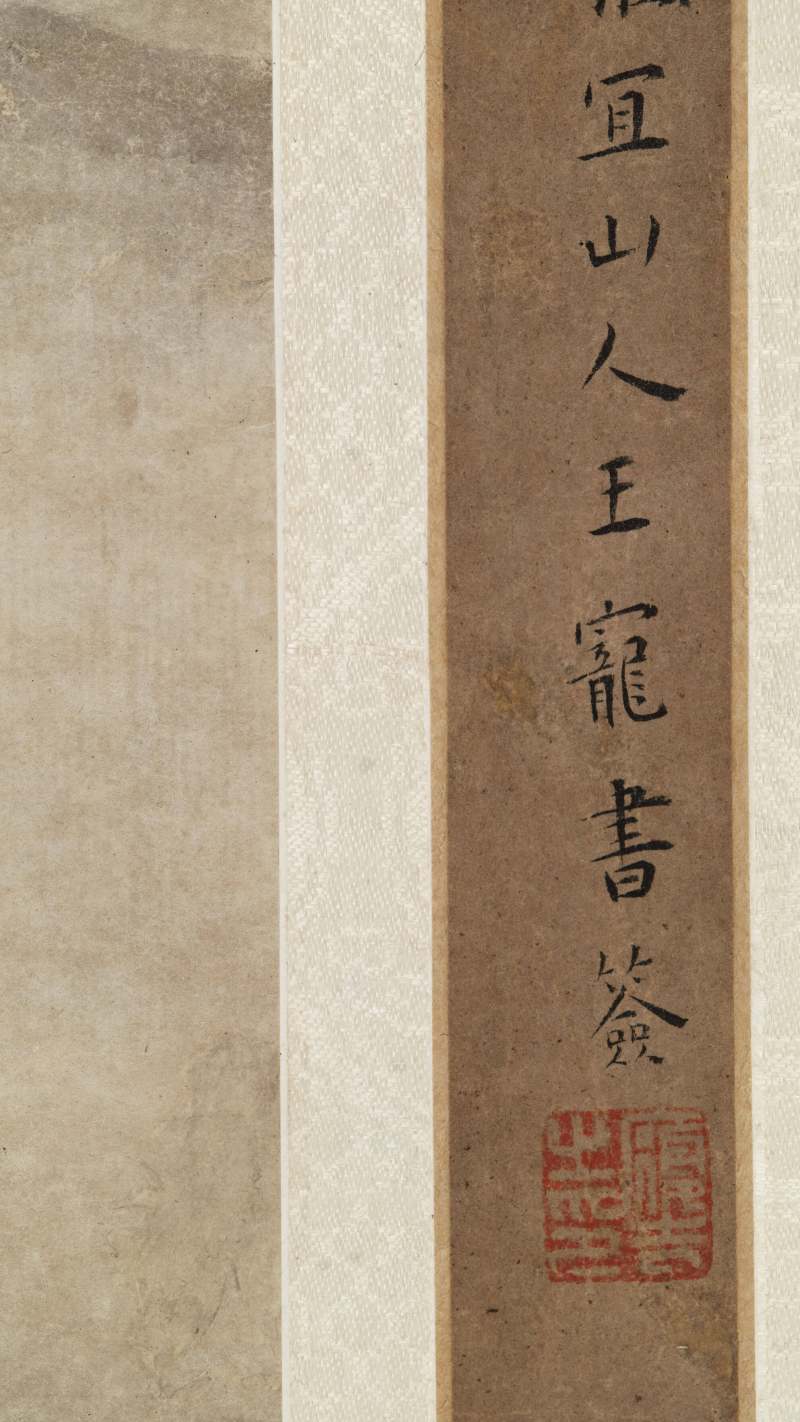 宜山人王寵書簽